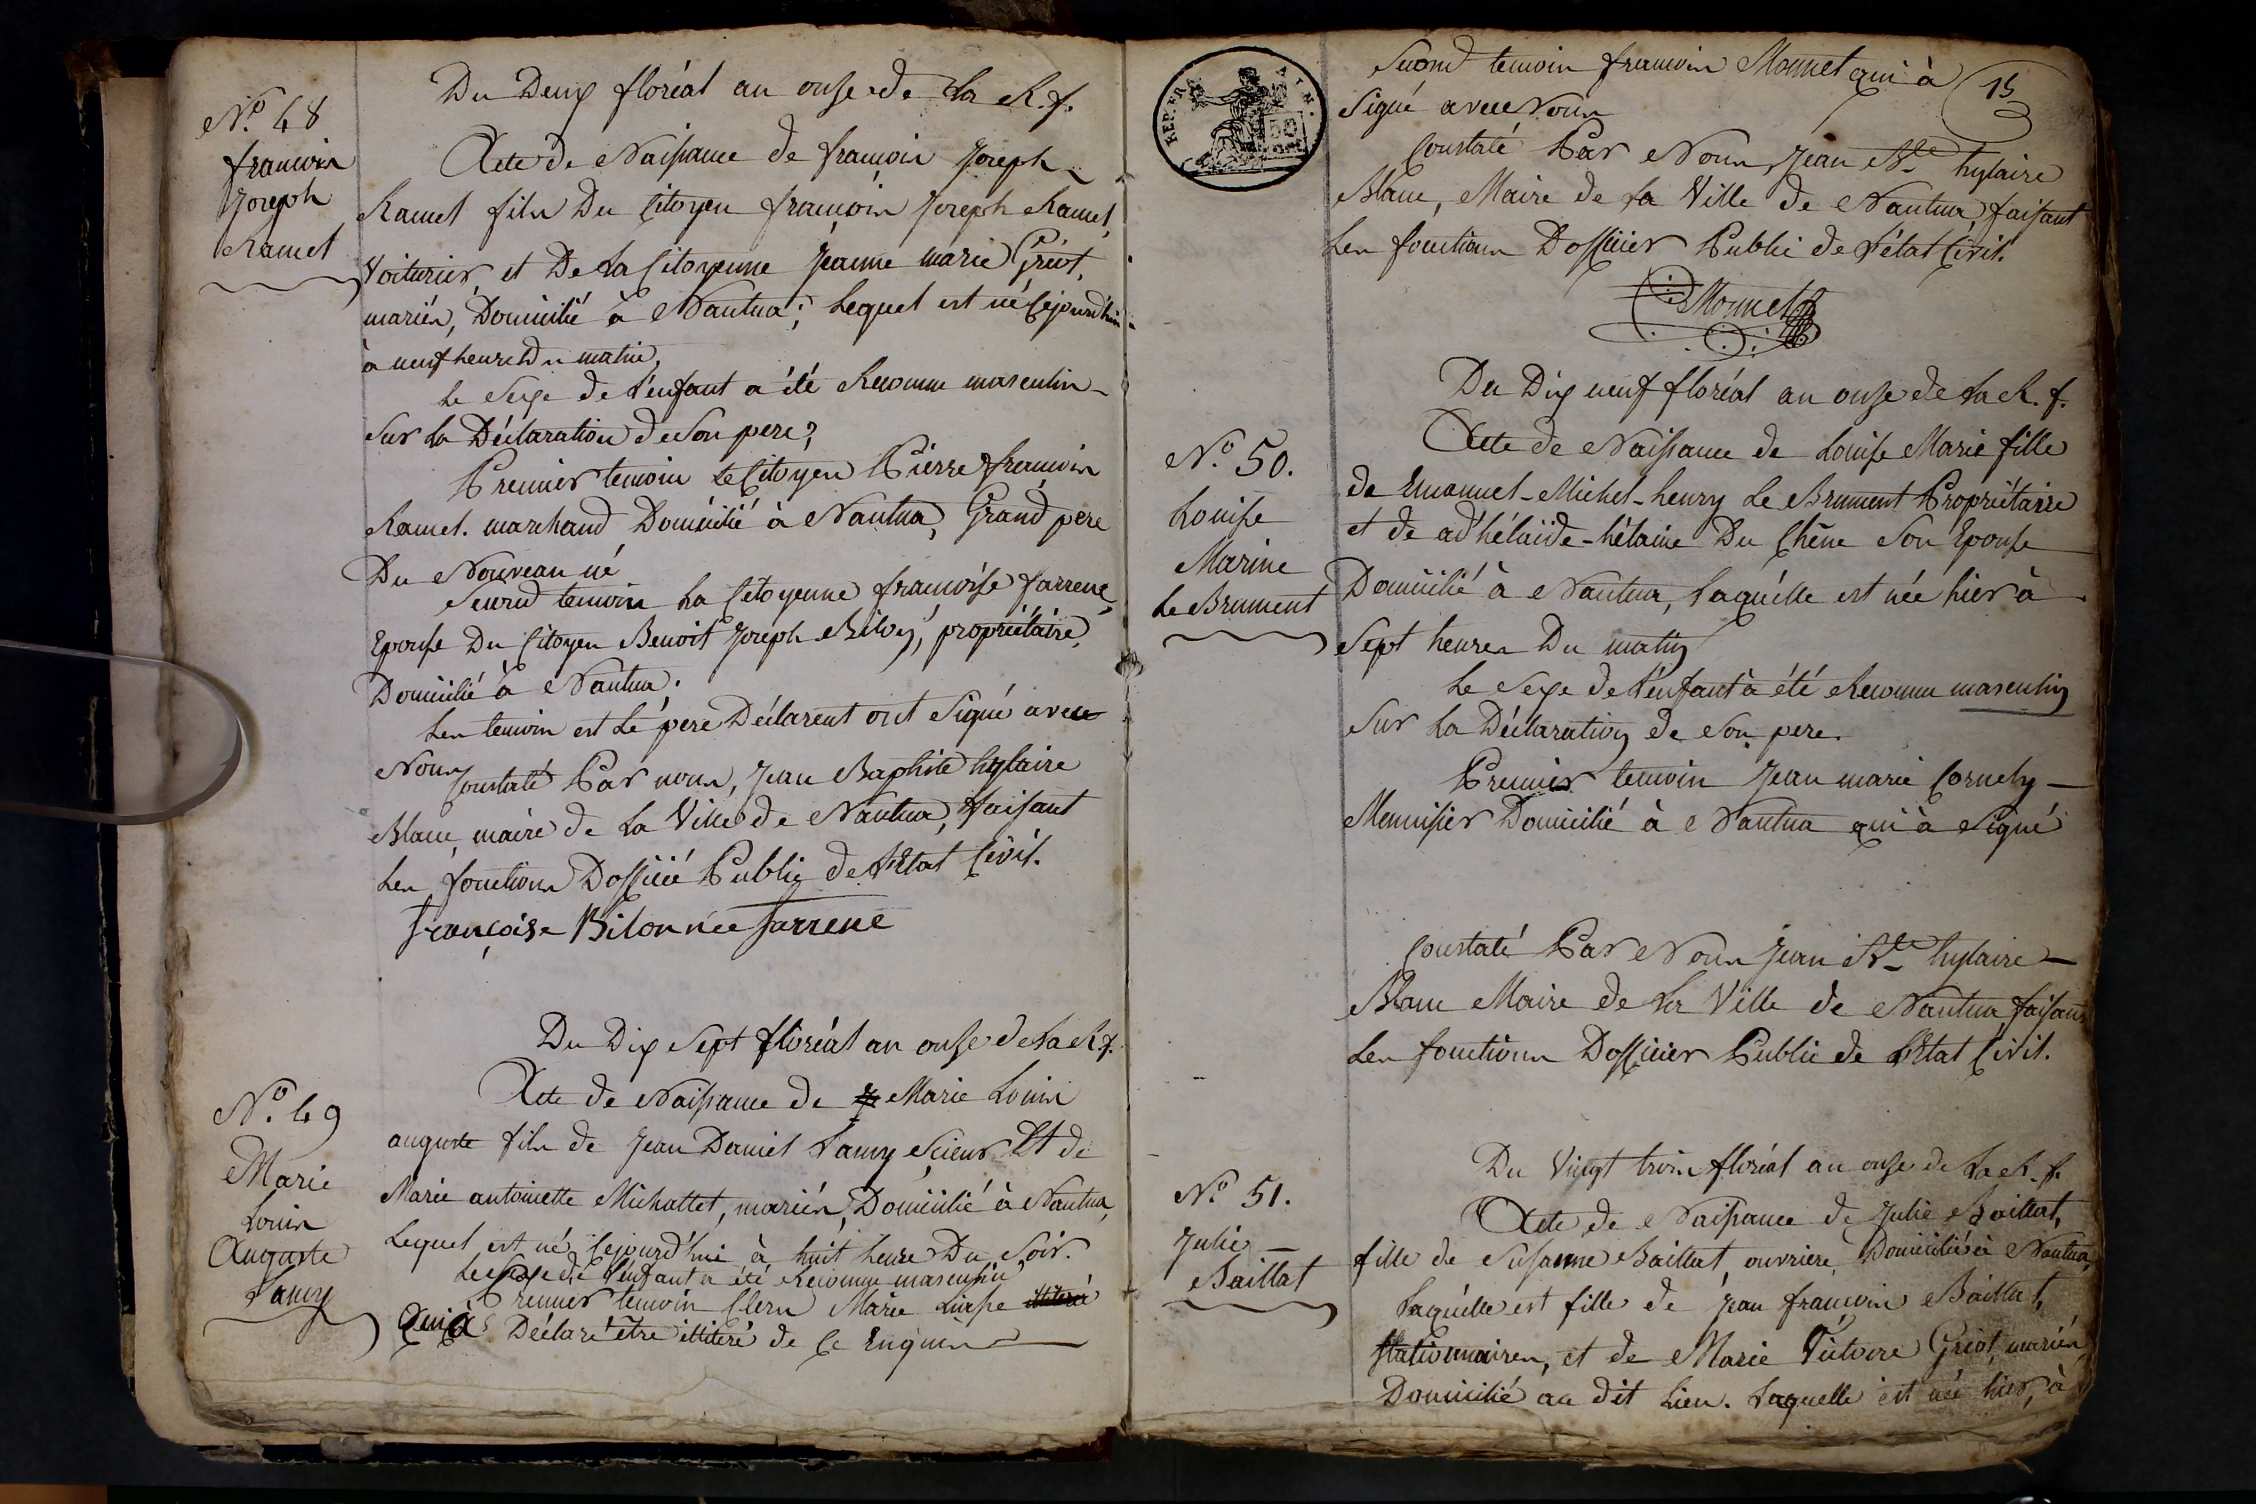 N.o 48
francois
Joseph
Ramel
Du Deux floréal an onse de La R. f.
Acte de Naissance de françois Joseph
Ramel fils Du Citoyen françois Joseph Ramel,
Voiturier, et De La Citoyenne Jeanne marie Griot,
mariés, Domicilié à Nantua; Lequel est né Cejourd'hui
à neuf heures Du matin,
Le Sexe de L'enfant a été Reconnu masculin
Sur La Déclaration de Son pere;
Premier temoin Le Citoyen Pierre françois
Ramel. marchand Domicilié à Nantua, Grand pere
Du Nouveau né
Second temoin La Citoyenne françoise farrene,
Epouse Du Citoyen Benoit Joseph, propriétaire,
Domicilié à Nantua.
Les temoin est Le pere Déclarent ont Signé avec
Nous
Constaté Par nous, Jean Baptiste hylaire
Blanc, maire de La Ville de Nantua, faisant
Les fonctions Dofficié Public de L'Etat Civil.
françoise Bilon née farrene
N.o 49
Marie
Louis
Auguste
Lamy
Du Dix Sept floréal an onse de La R. f.
Acte de Naissance de Marie Louis
auguste fils de Jean Daniel Lamy Scieur Et de
Marie antoinette Michallet, mariés, Domicilié à Nantua,
Lequel est né Cejourd'hui à huit heure Du Soir.
Le Sexe de L'enfant a été Reconnu masculin
Premier temoin Clern Marie
Qui à Déclaré être illiteré de Ce Enquis
15
Second temoin francois Monnet qui à
Signé avec Nous
Constaté Par Nous, Jean Bte hylaire
Blanc, Maire de La Ville de Nantua, faisant
Les fonctions Dofficier Public de L'état Civil.
Monnet
N.o 50.
Louise
Marine
Le Brument
Du Dix neuf floréal an onse de La R. f.
Acte de Naissance de Louise Marie fille
de Emanuel-Michel-henry Le Brument Propriétaire
et de ad'hélaïde-hélaine Du Chêne Son Epouse
Domicilié à Nantua, Laquélle est née hier à
Sept heures Du matin
Le Sexe de L'énfant à été Reconnu masculin
Sur La Déclaration de Son pere.
Premier temoin Jean marie Cornely
Menuisier Domicilié à Nantua qui à Signé
Constaté Par Nous Jean Bte hylaire
Blanc Maire de La Ville de Nantua faisant
Les fonctions Dofficier Public de L'Etat Civil.
N.o 51.
Julie
Baillat
Du Vingt trois floréal an onse de La R. f.
Acte de Naissance de Julie Baillat,
fille de Susanne Baillat, ouvriere, Domiciliée à Nantua,
Laquélle est fille de Jean francois Baillat,
Stationnaires, et de Marie Victoire Griot, mariés,
Domicilié au dit Lieu. Laquelle est née hier, à